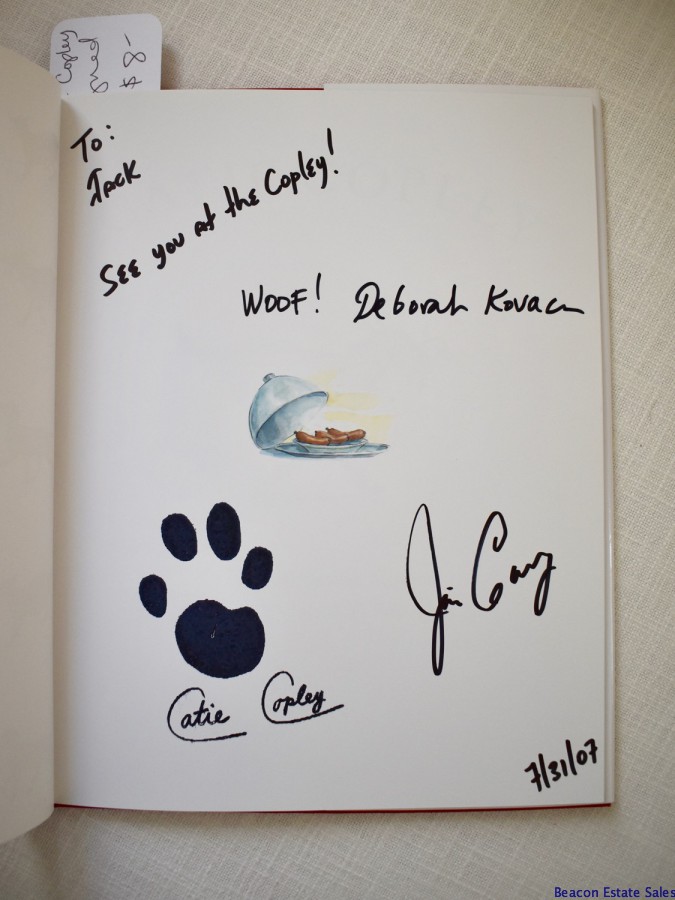 Copley
$8-
To:
Jack
SEE you at the Copley!
WOOF! Deborah Kovacs
Catie Copley
7/31/07
Beacon Estate Sales